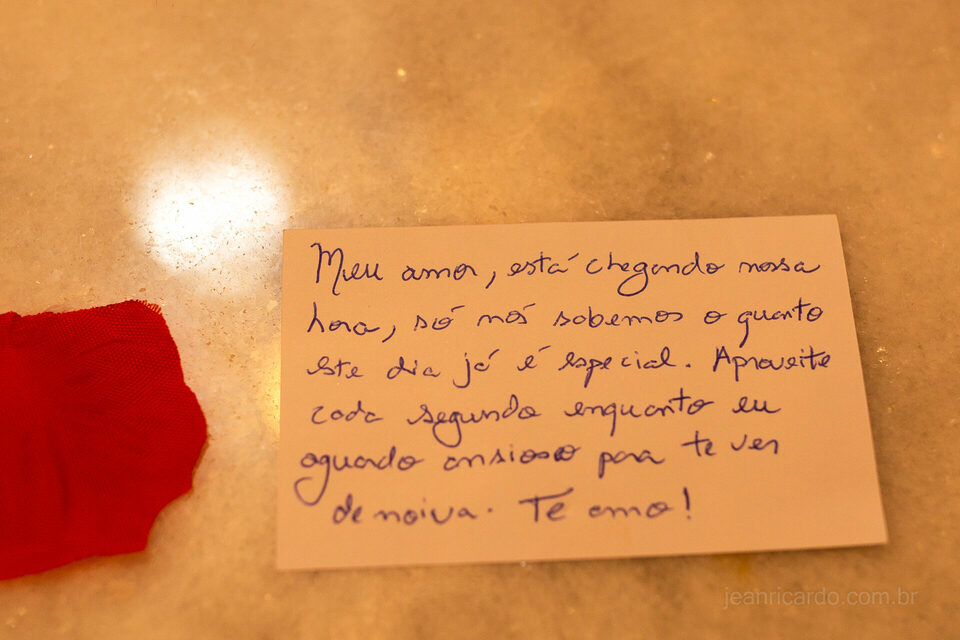 Meu amor, está chegando nossa
hora, só nós sabemos o quanto
este dia já é especial. Aproveite
cada segundo enquanto eu
aguardo ansioso para te ver
de noiva. Te amo!
jeanricardo.com.br